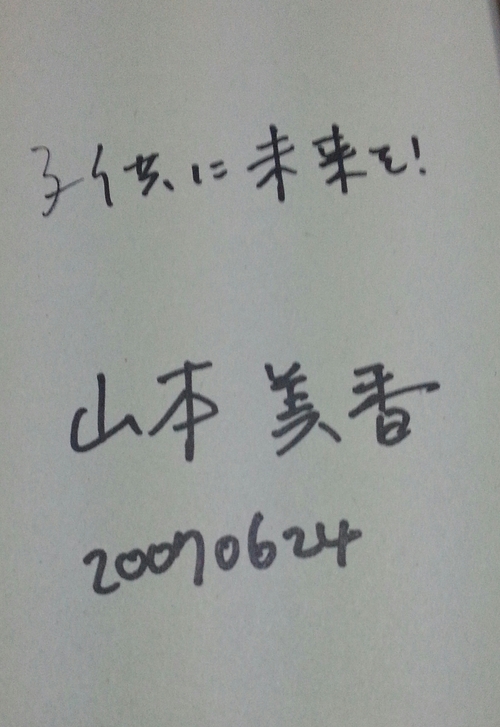 子供に未来を!
山本美香
20070624